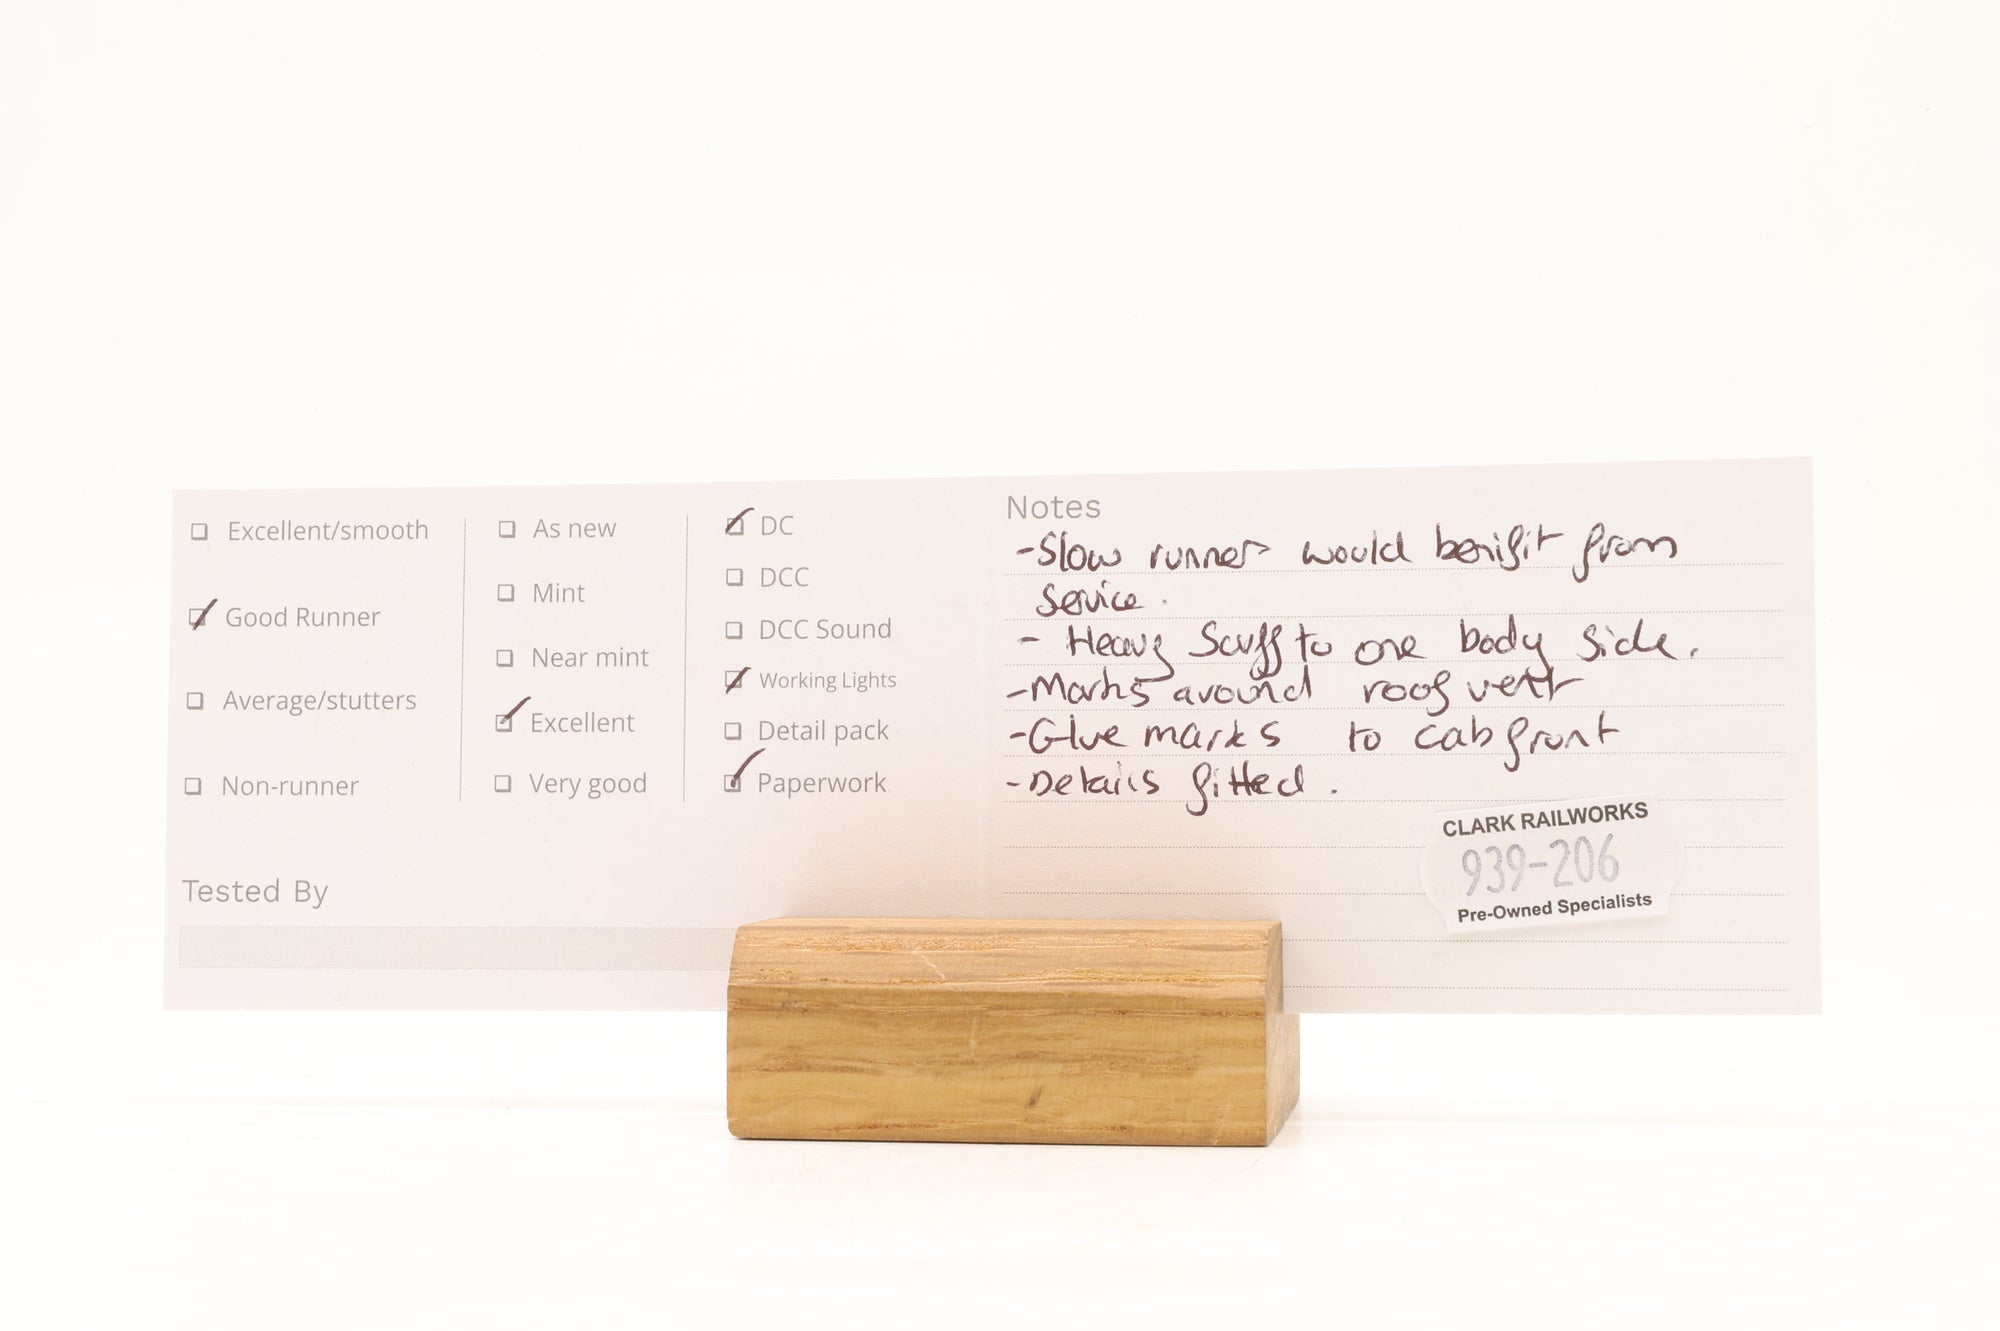 Excellent/smooth
Good Runner
Average/stutters
Non-runner
As new
Mint
Near mint
Excellent
Very good
DC
DCC
DCC Sound
Working Lights
Detail pack
Paperwork
Tested By
Notes
-Slow runner would benifit from
service.
- Heavy Scuff to one body side.
-Marks around roof vent
-Glue marks to cab front
-Details fitted.
CLARK RAILWORKS
939-206
Pre-Owned Specialists